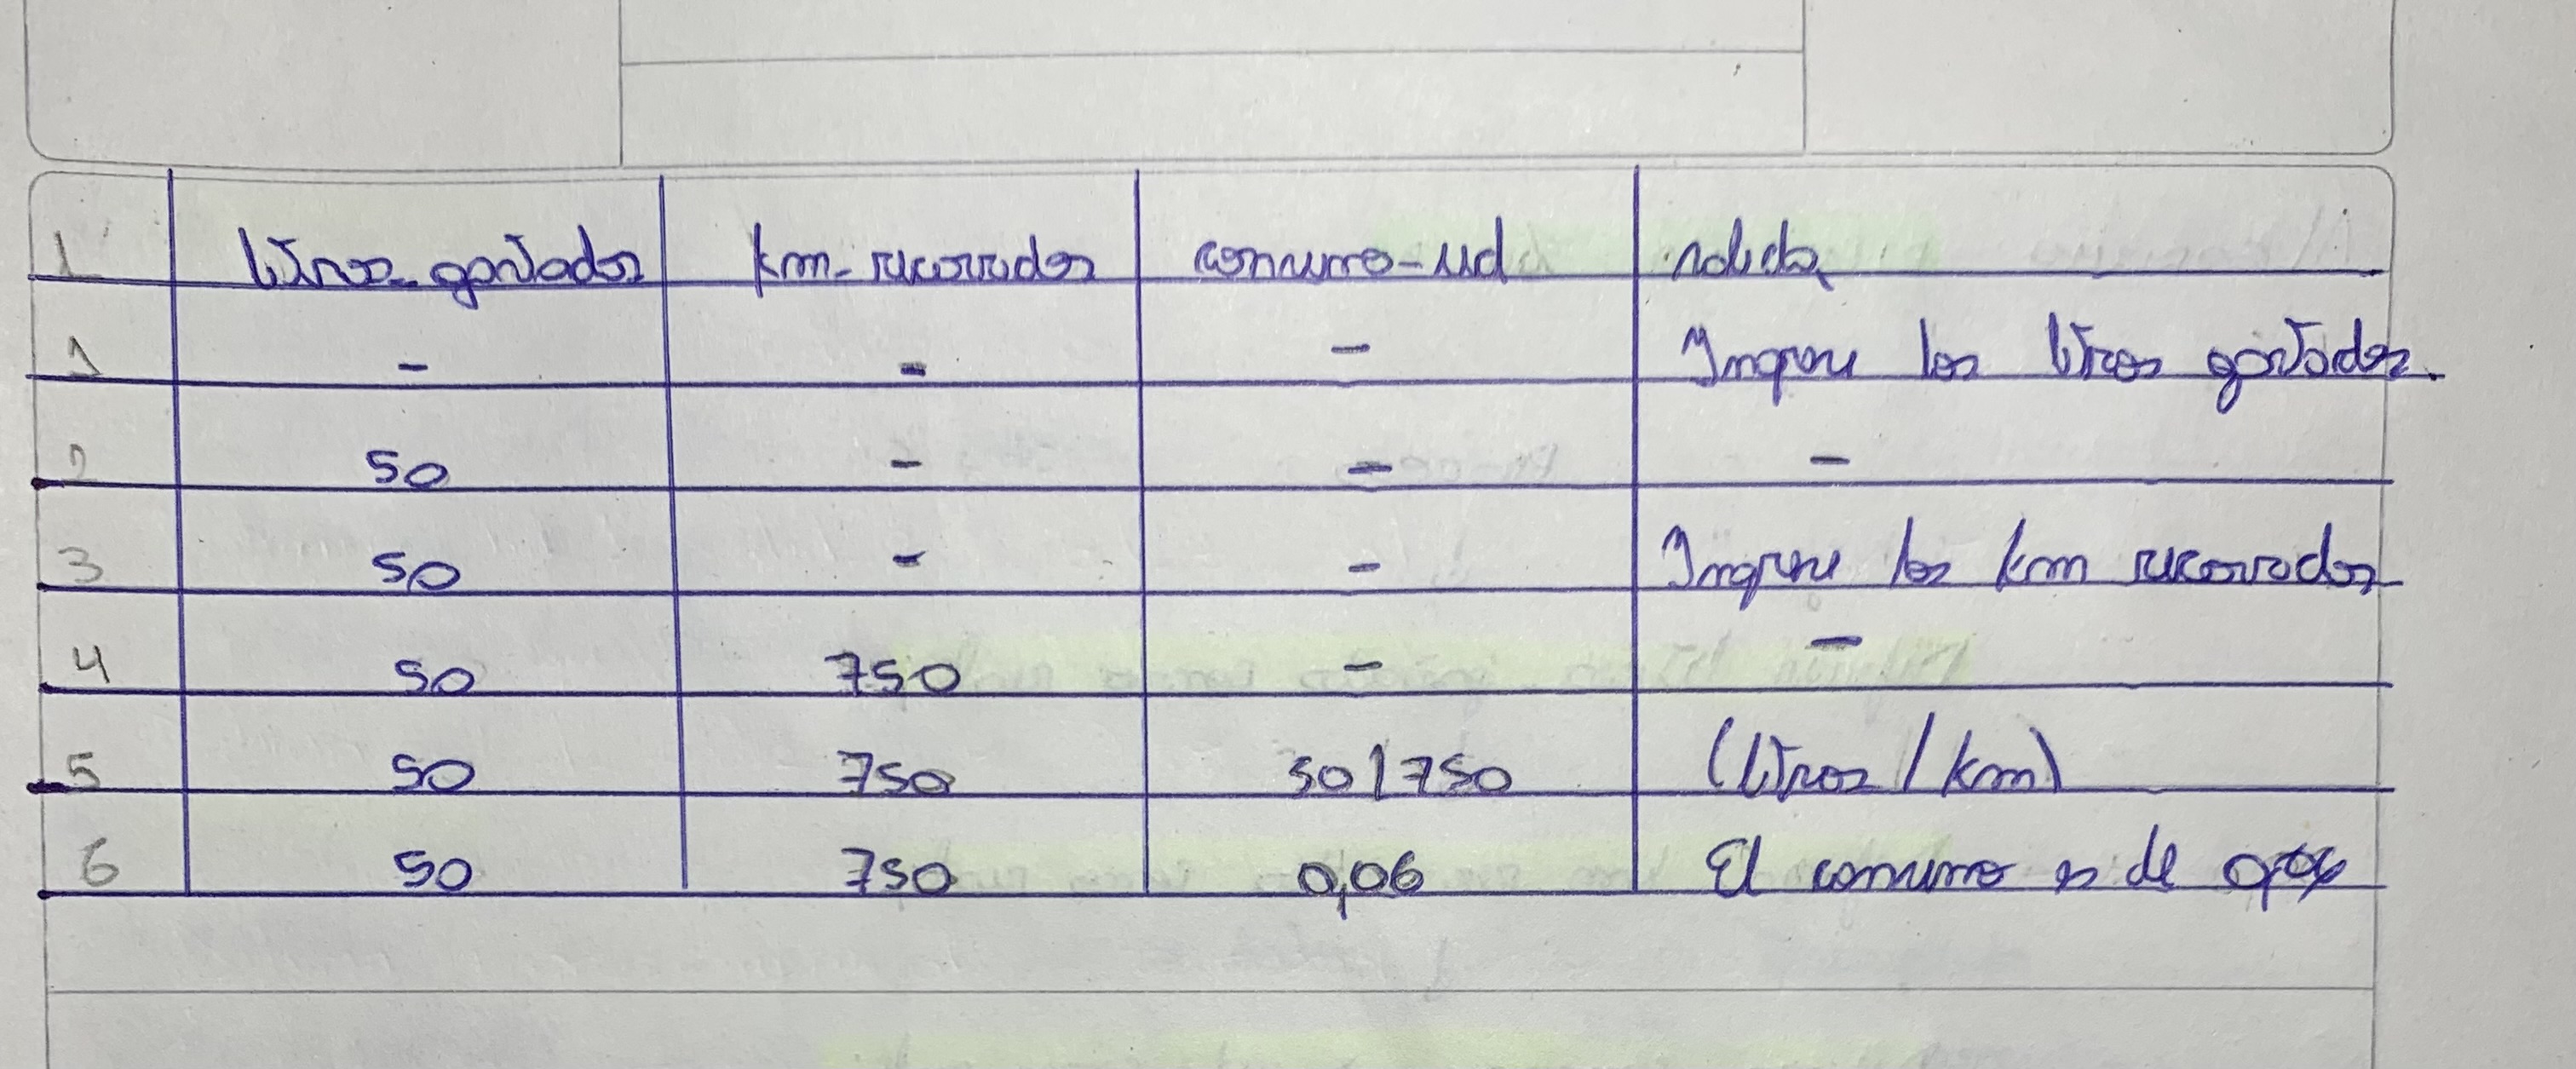 1 litros_gastados km_recorridos consumo_ud salida
1 - - - Ingrese los litros gastados.
2 50 - - -
3 50 - - Ingrese los km recorridos
4 50 750 - -
5 50 750 50/750 (litros/km)
6 50 750 0,06 El consumo es de 0,06